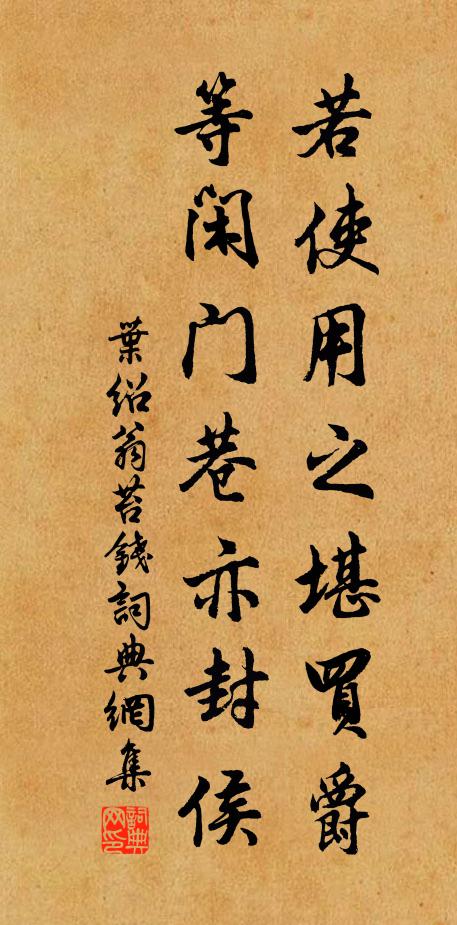 若使用之堪買爵
等闲门巷亦封侯
葉绍翁苔錢詞典網集
詞典网印